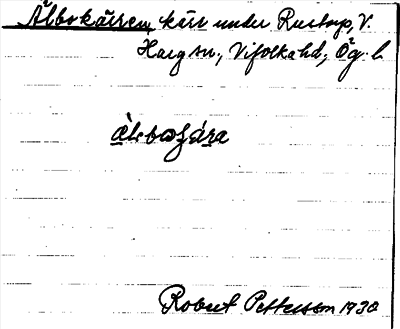 Älbokärren, kärr under Rustorp, V.
Harg sn, Vifolka hd, Ög. l.
Robert Pettersson 1930